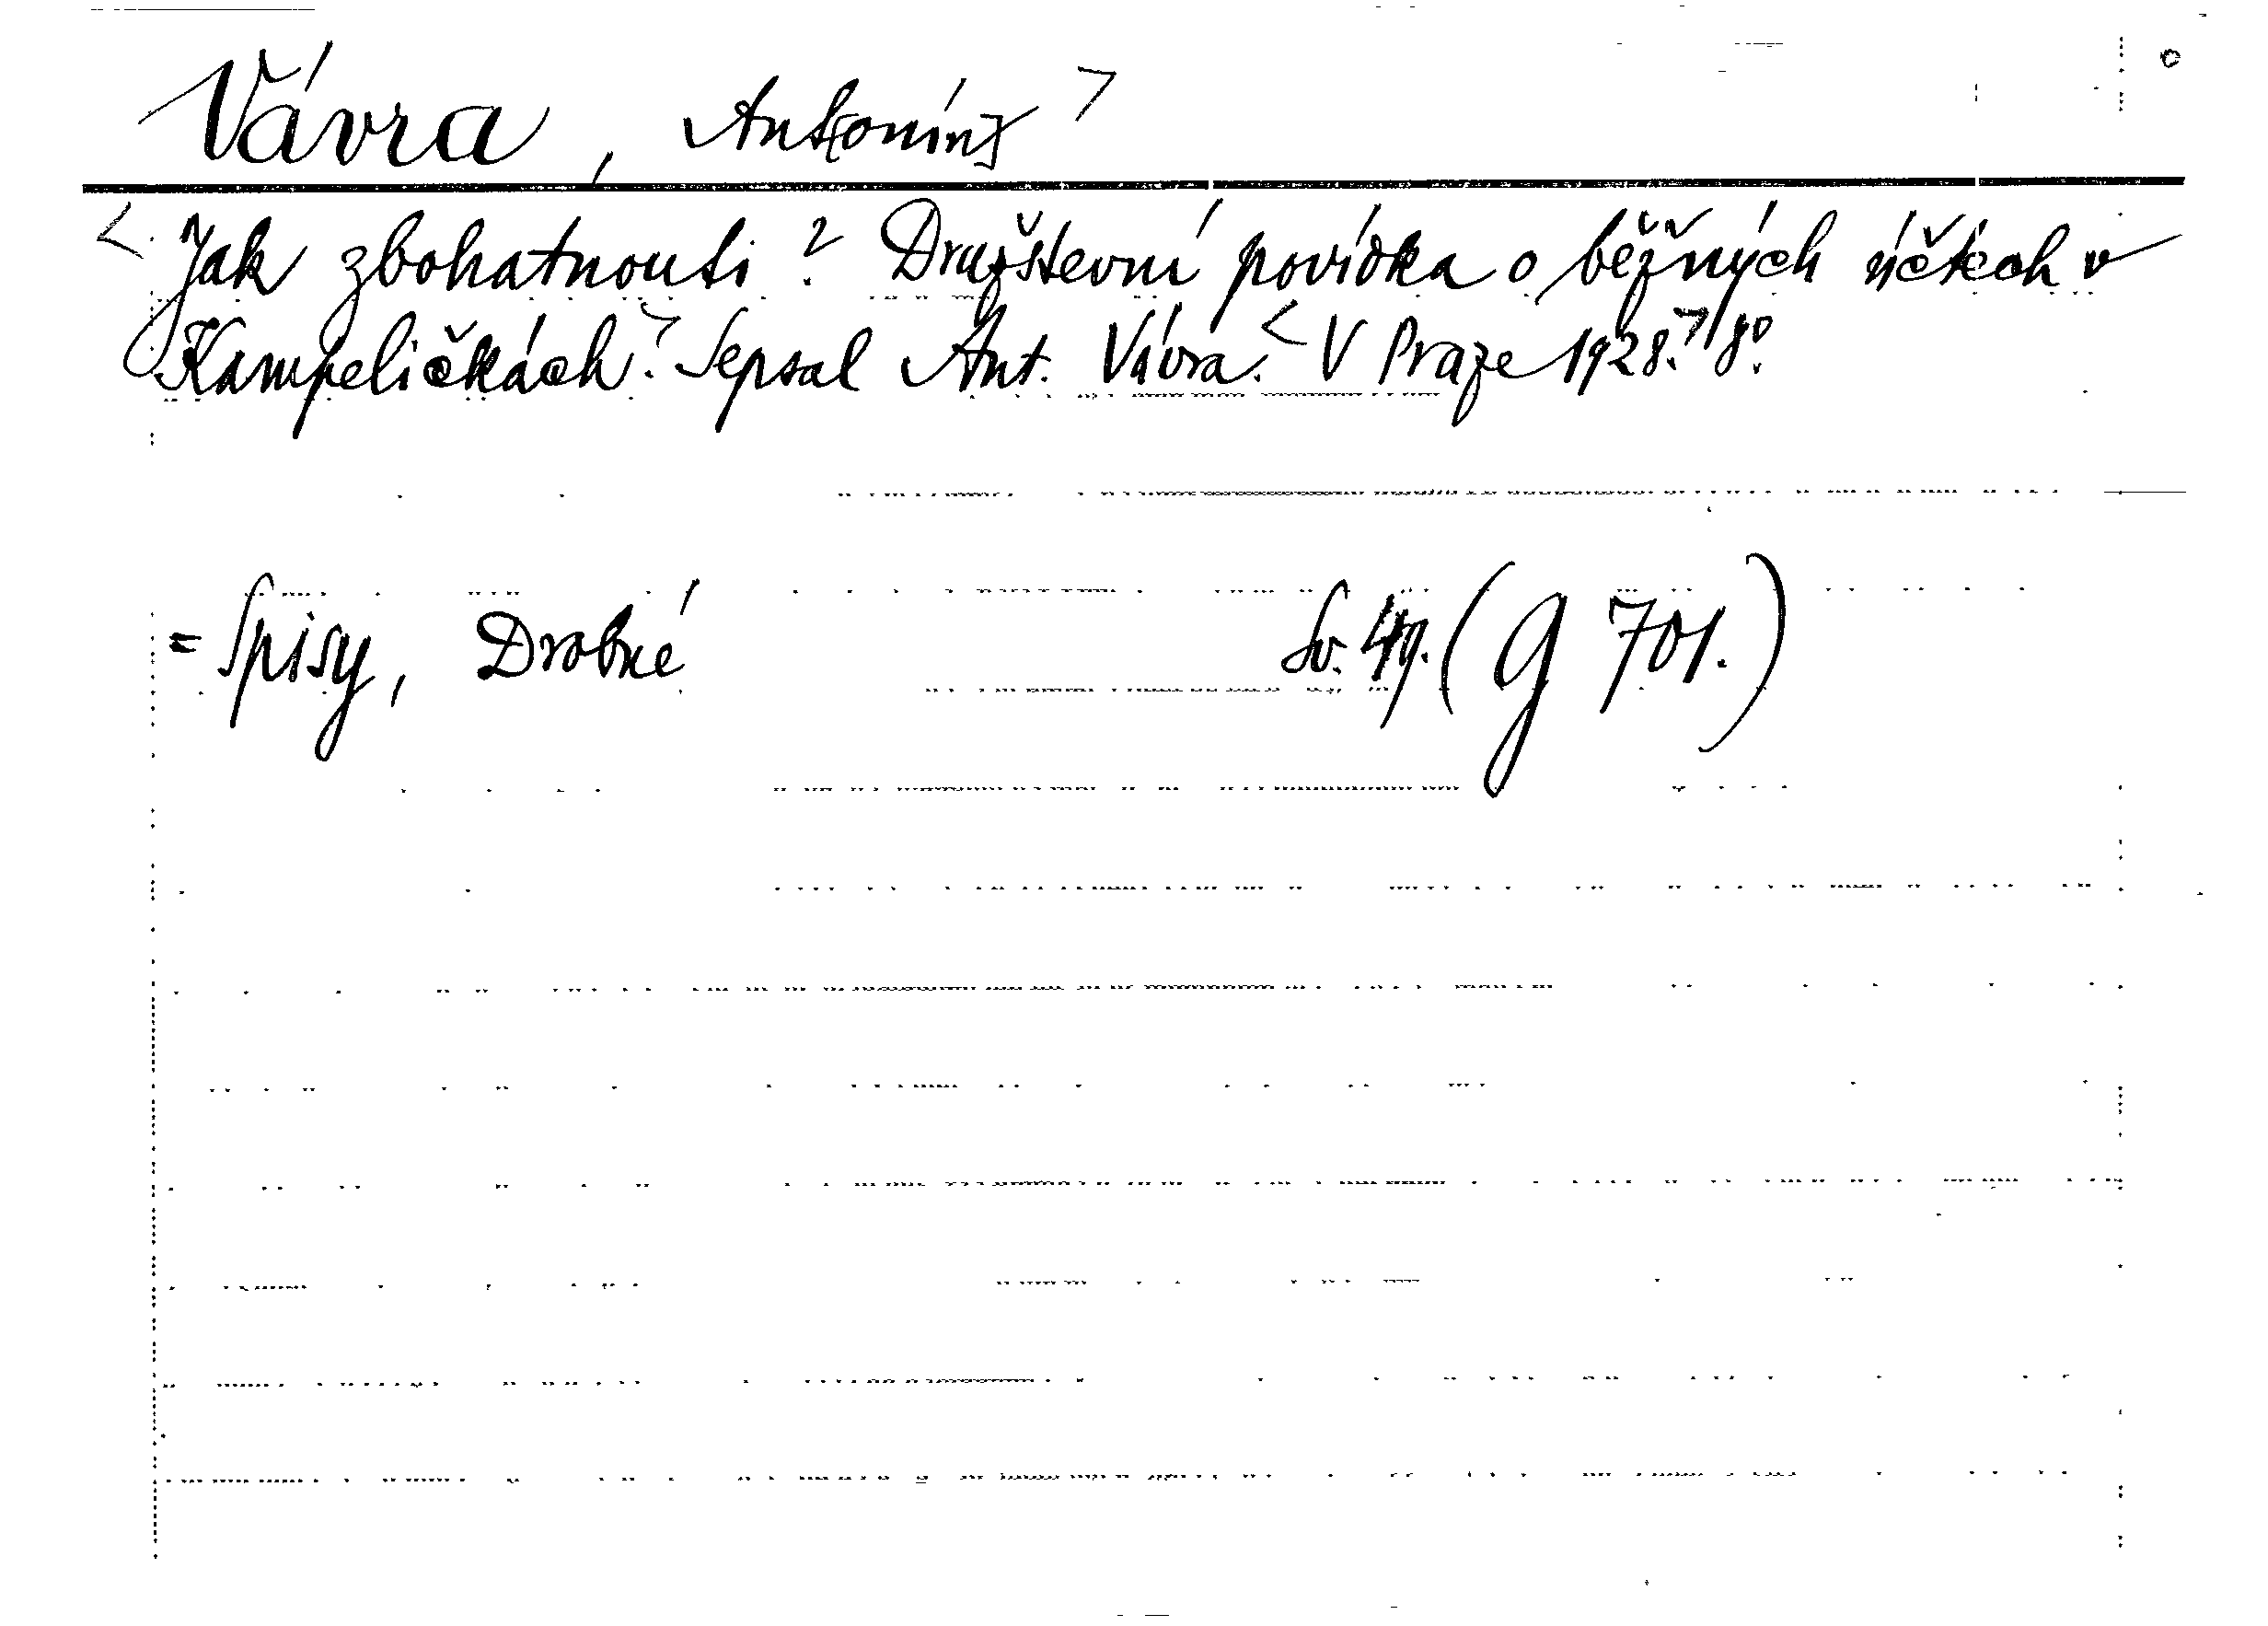 Vávra, Ant[onín] >
< Jak zbohatnouti? Družstevní povídka o běžných účtech v
Kampeličkách. > Sepsal Ant. Vávra. < V Praze 1928. > 8°.
= Spisy, Drobné Sv. 49. (G 701.)